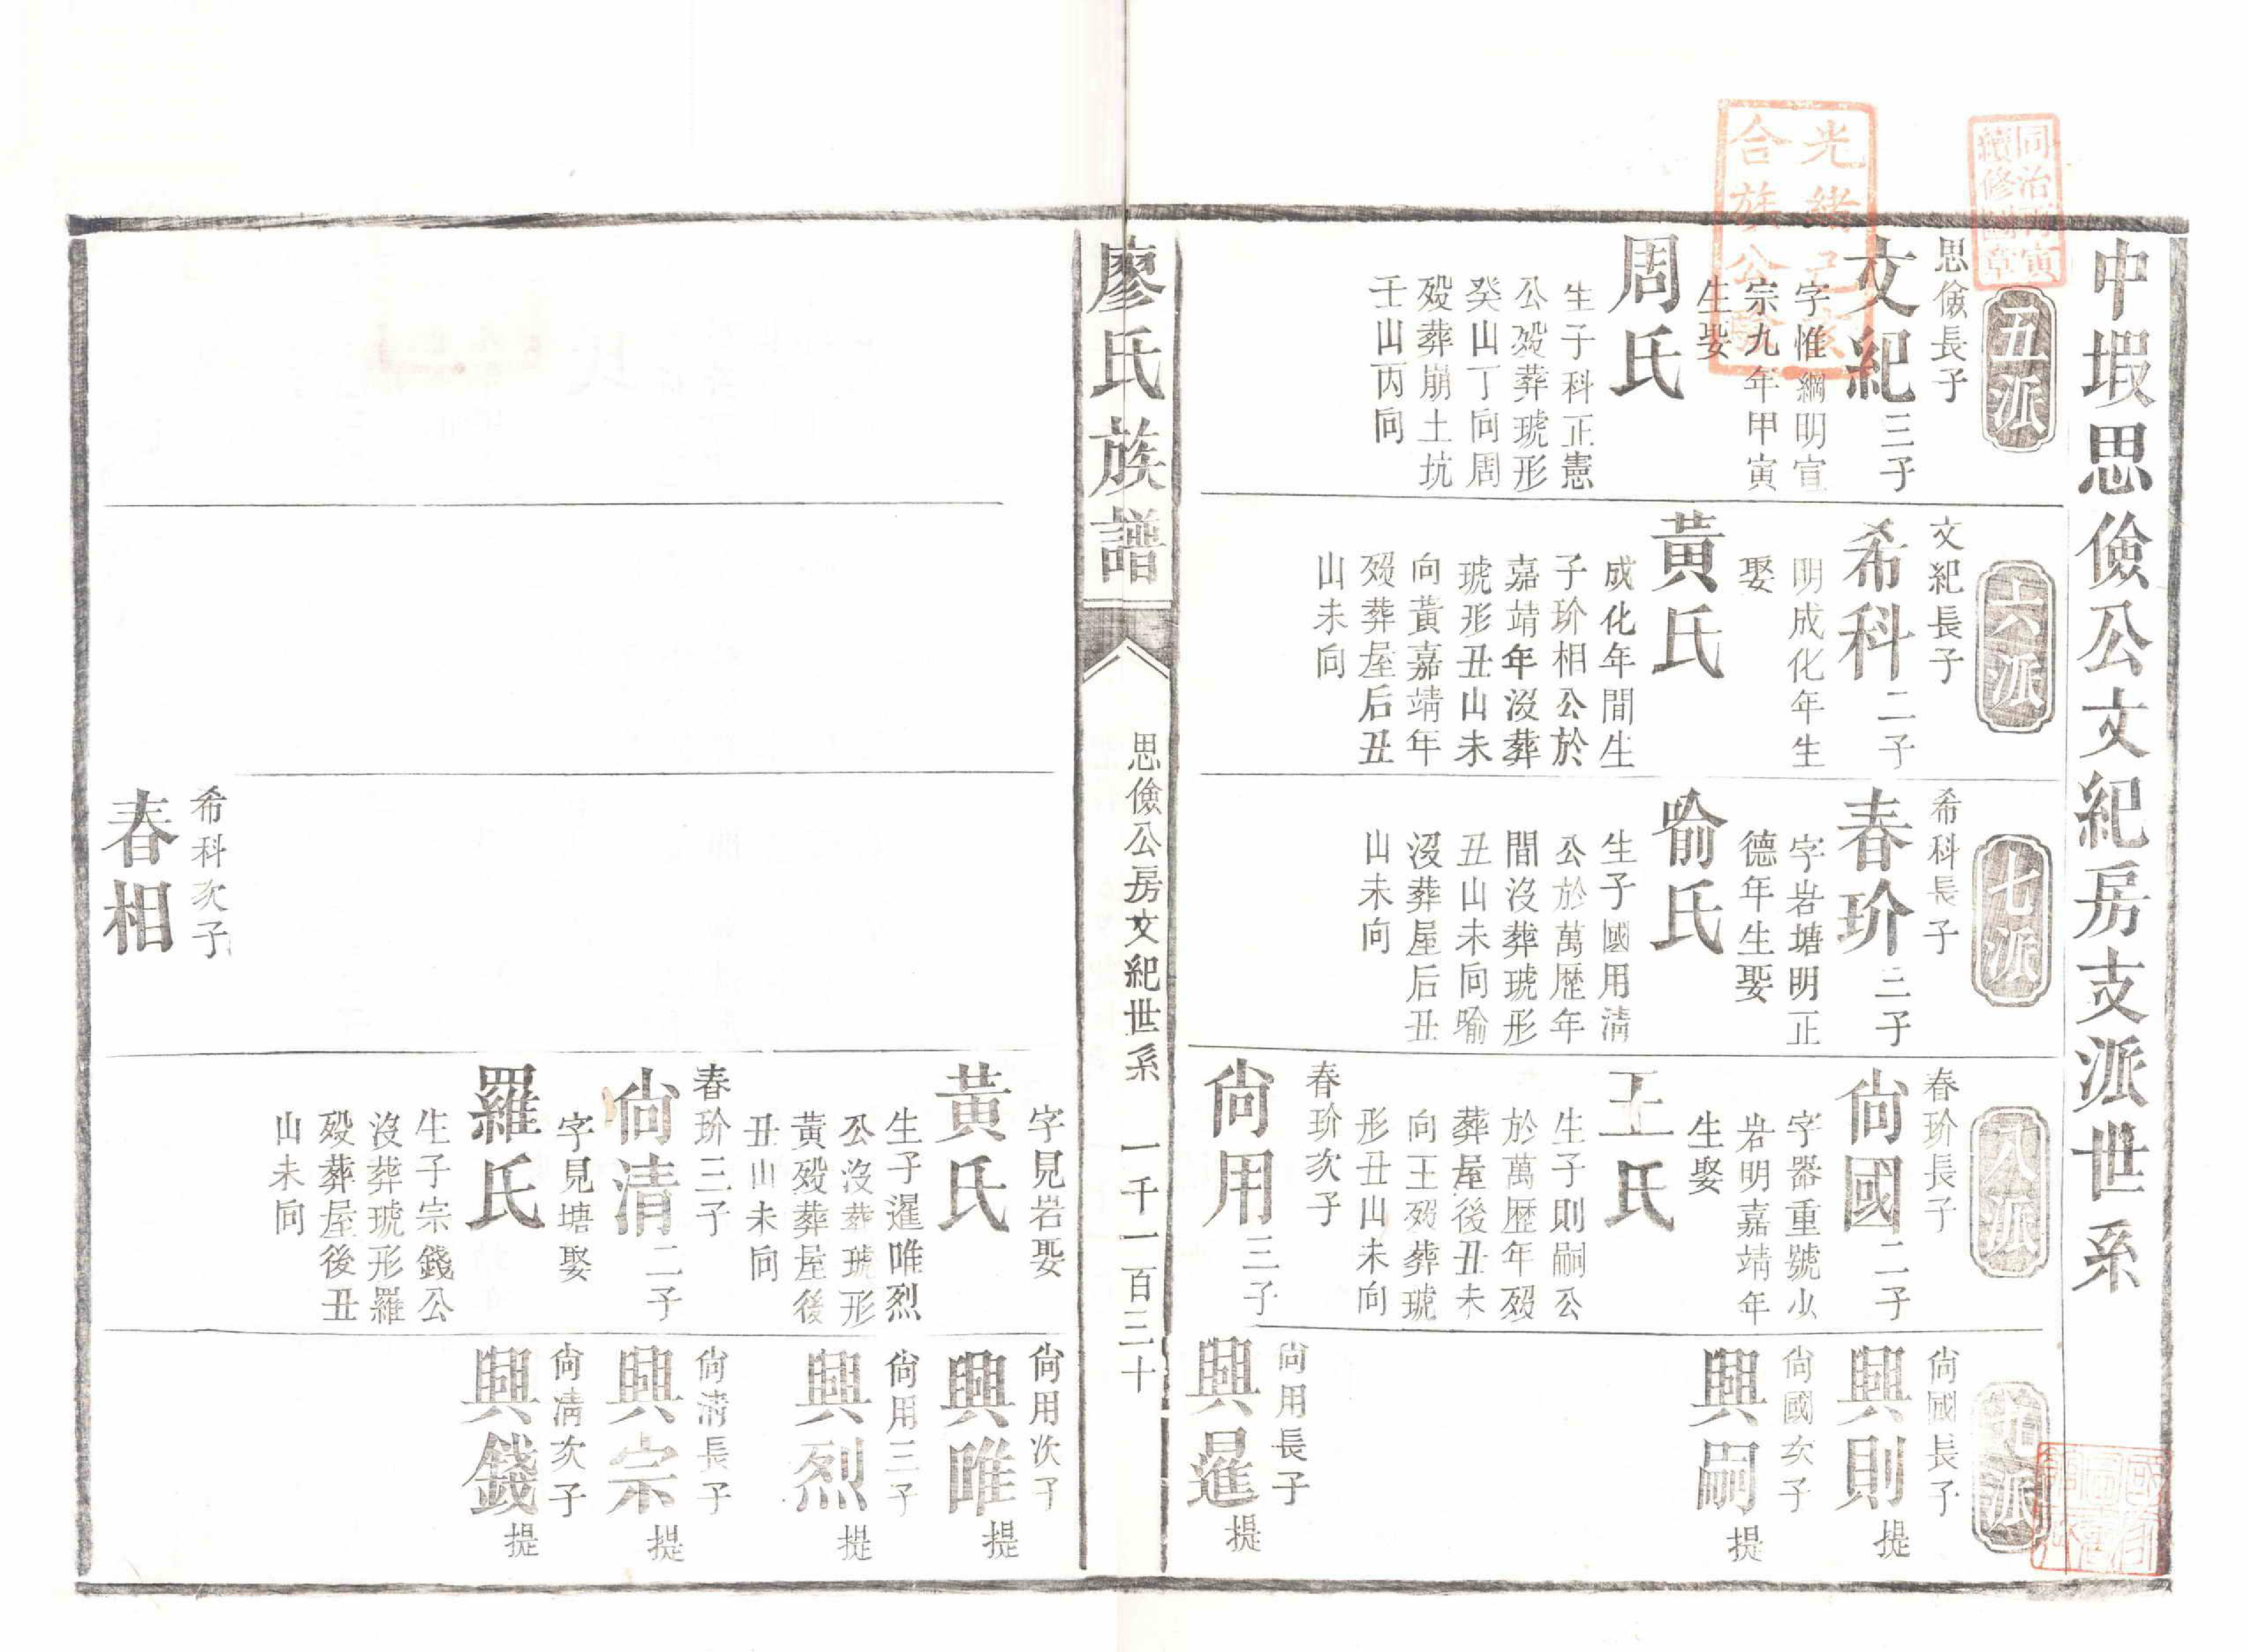 中塅思儉公文紀房支派世系
同治丙寅
續修圖章
光緒己亥
合族公發
五派
思儉長子
文紀三子
字惟綱明宣
宗九年甲寅
生娶
周氏
生子科正憲
公殁葬琥形
癸山丁向周
殁葬崩土坑
壬山丙向
六派
文紀長子
希科二子
明成化年生
娶
黃氏
成化年間生
子玠相公於
嘉靖年沒葬
琥形丑山未
向黃嘉靖年
殁葬屋后丑
山未向
七派
希科長子
春玠三子
字岩塘明正
德年生娶
喻氏
生子國用清
公於萬歷年
間沒葬琥形
丑山未向喻
沒葬屋后丑
山未向
八派
春玠長子
尙國二子
字器重號少
岩明嘉靖年
生娶
王氏
生子則嗣公
於萬歷年殁
葬屋後丑未
向王殁葬琥
形丑山未向
春玠次子
尙用三子
九派
尙國長子
興則提
尙國次子
興嗣提
尙用長子
興暹提
廖氏族譜
思儉公房文紀世系 一千一百三十
希科次子
春相
字見岩娶
黃氏
生子暹唯烈
公沒葬琥形
黃殁葬屋後
丑山未向
春玠三子
尙清二子
字見塘娶
羅氏
生子宗錢公
沒葬琥形羅
殁葬屋後丑
山未向
尙用次子
興唯提
尙用三子
興烈提
尙清長子
興宗提
尙清次子
興錢提